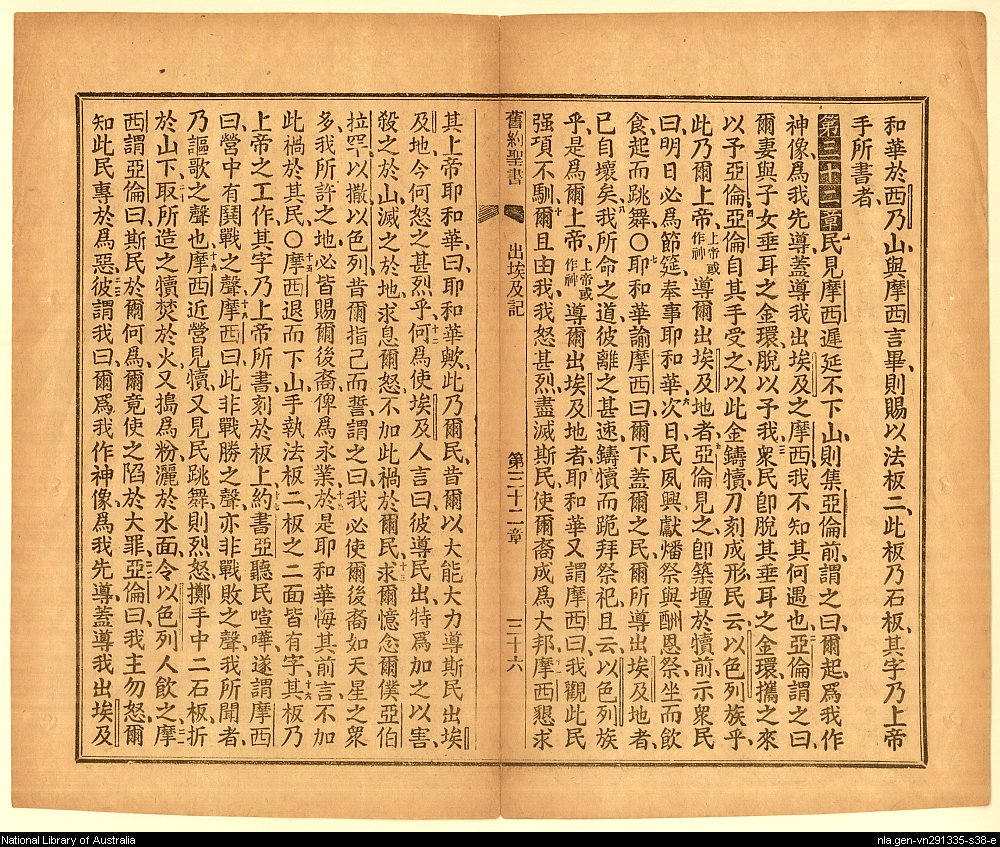 和華於西乃山與摩西言畢則賜以法板二此板乃石板其字乃上帝
手所書者
第三十二章民見摩西遲延不下山則集亞倫前謂之曰爾起爲我作
神像爲我先導蓋導我出埃及之摩西我不知其何遇也亞倫謂之曰
爾妻與子女垂耳之金環脫以予我衆民卽脫其垂耳之金環攜之來
以予亞倫亞倫自其手受之以此金鑄犢刀刻成形民云以色列族乎
此乃爾上帝上帝或作神導爾出埃及地者亞倫見之卽築壇於犢前示衆民
曰明日必爲節筵奉事耶和華次日民夙興獻燔祭與酬恩祭坐而飲
食起而跳舞〇耶和華諭摩西曰爾下蓋爾之民爾所導出埃及地者
已自壞矣我所命之道彼離之甚速鑄犢而跪拜祭祀且云以色列族
乎是爲爾上帝上帝或作神導爾出埃及地者耶和華又謂摩西曰我觀此民
强項不馴爾且由我我怒甚烈盡滅斯民使爾裔成爲大邦摩西懇求
舊約聖書 出埃及記 第三十二章 三十六
其上帝耶和華曰耶和華歟此乃爾民昔爾以大能大力導斯民出埃
及地今何怒之甚烈乎何爲使埃及人言曰彼導民出特爲加之以害
殺之於山滅之於地求息爾怒不加此禍於爾民求爾憶念爾僕亞伯
拉罕以撒以色列昔爾指己而誓謂之曰我必使爾後裔如天星之衆
多我所許之地必皆賜爾後裔俾爲永業於是耶和華悔其前言不加
此禍於其民〇摩西退而下山手執法板二板之二面皆有字其板乃
上帝之工作其字乃上帝所書刻於板上約書亞聽民喧嘩遂謂摩西
曰營中有鬭戰之聲摩西曰此非戰勝之聲亦非戰敗之聲我所聞者
乃謳歌之聲也摩西近營見犢又見民跳舞則烈怒擲手中二石板折
於山下取所造之犢焚於火又搗爲粉灑於水面令以色列人飲之摩
西謂亞倫曰斯民於爾何爲爾竟使之陷於大罪亞倫曰我主勿怒爾
知此民專於爲惡彼謂我曰爾爲我作神像爲我先導蓋導我出埃及
National Library of Australia
nla.gen-vn291335-s38-e